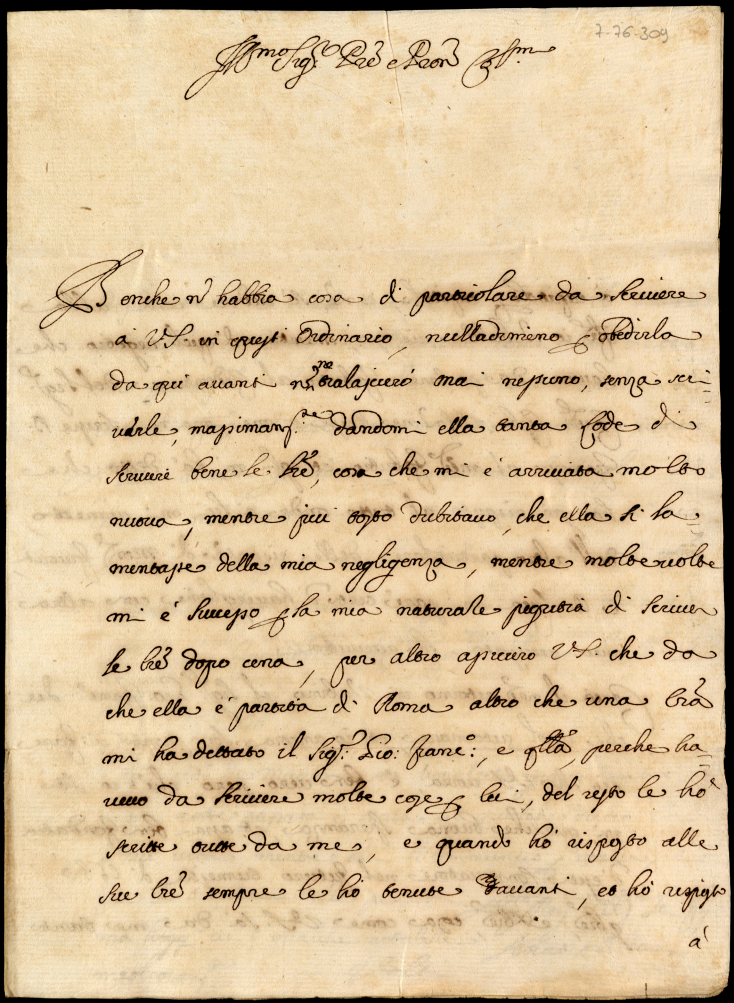 7-76-309
Ill.mo Sig.r Prē e Pron̄ Col.mo
Benche n̄ habbia cosa di particolare da scriuere
à VS. in quest'Ordinario, nulladimeno p obedirla
da qui auanti n̄ ne tralascierò mai nessuno, senza scri=
uerle, massimam.te dandomi ella tanta lode di
scriuere bene le lrē, cosa che mi è arriuata molto
nuoua, mentre più tosto dubitauo, che ella si la=
mentasse della mia negligenza, mentre molte uolte
mi è successo p la mia naturale pigritia di scriuer
le lrē dopo cena, per altro assicuro VS. che da
che ella è partita di Roma altro che una lrā
mi ha dettato il Sig.r Gio: Franc.o:, e q̄llā, perche ha=
ueuo da scriuere molte cose p lei, del resto le hò
scritte tutte da me, e quando hò risposto alle
sue lrē sempre le hò tenute dauanti, et hò risposto
à